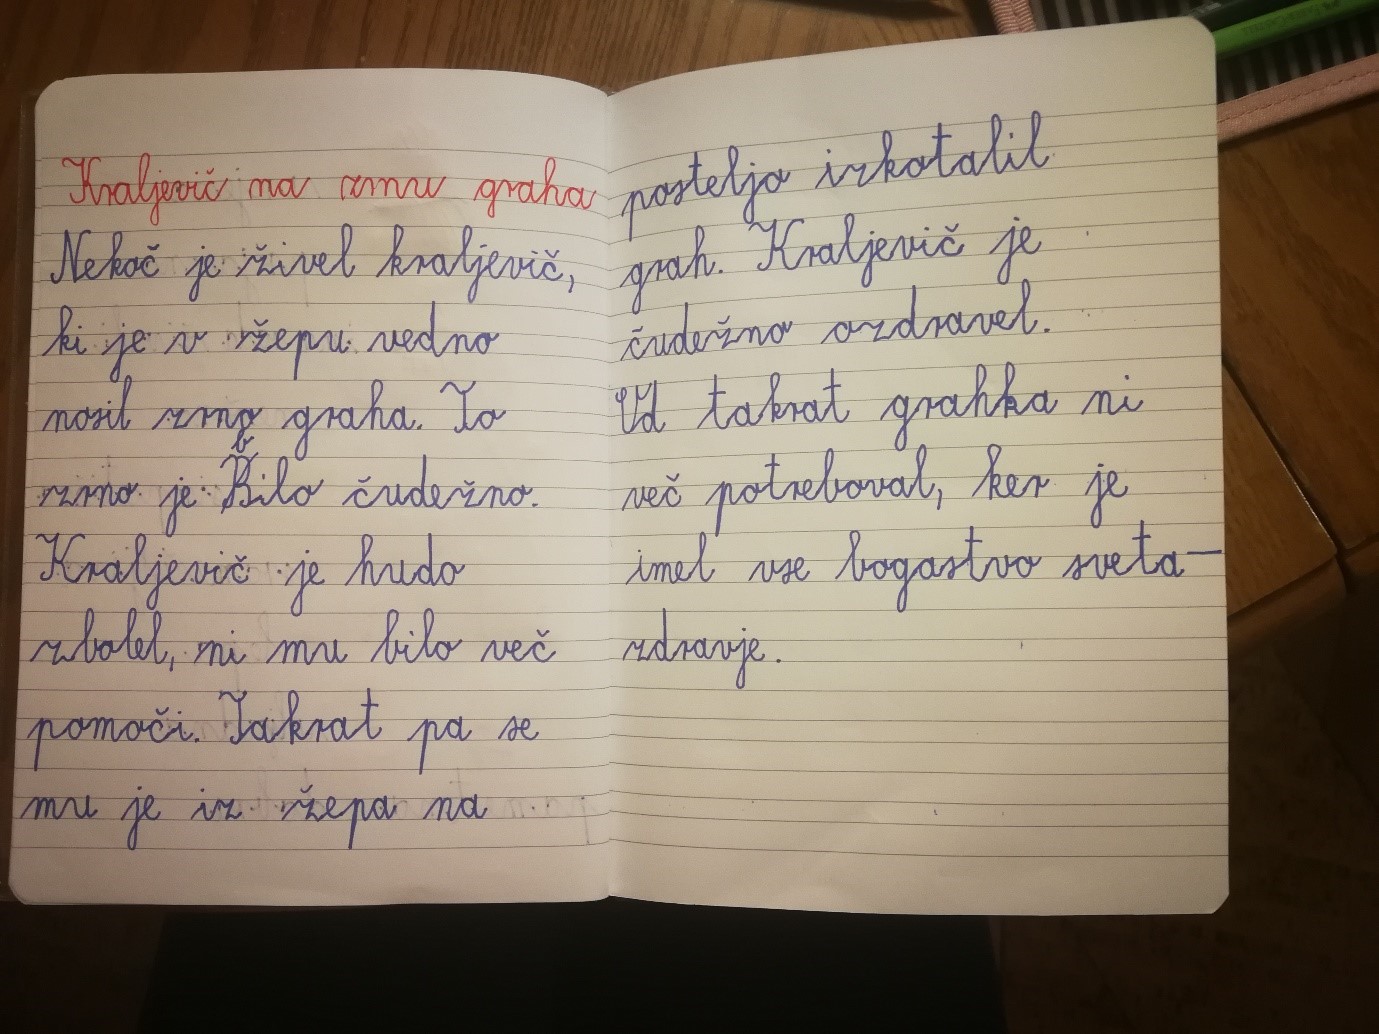 Kraljevič na zrnu graha
Nekoč je živel kraljevič,
ki je v žepu vedno
nosil zrno graha. To
zrno je bilo čudežno.
Kraljevič je hudo
zbolel, ni mu bilo več
pomoči. Takrat pa se
mu je iz žepa na
posteljo izkotalil
grah. Kraljevič je
čudežno ozdravel.
Od takrat grahka ni
več potreboval, ker je
imel vse bogastvo sveta-
zdravje.